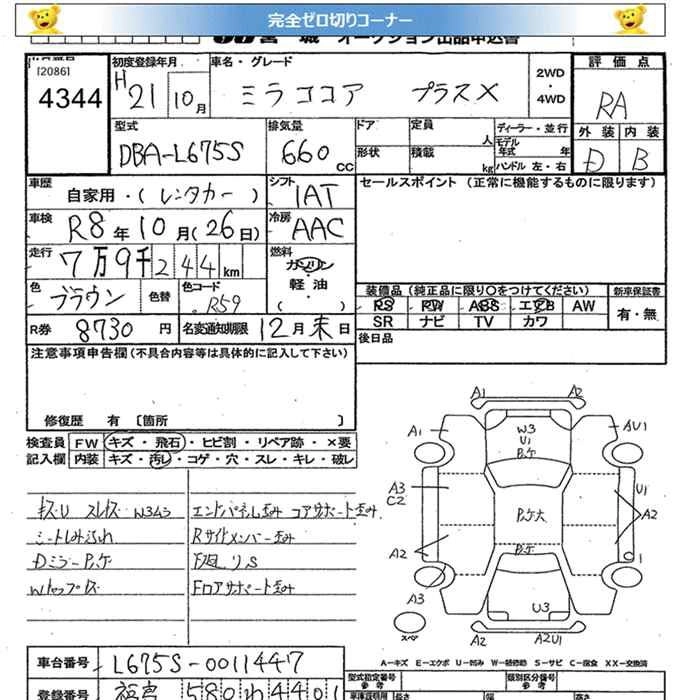 完全ゼロ切りコーナー
宮城 オークション出品申込書
[2086]
4344
初度登録年月
H21 10月
車名・グレード
ミラココア プラスX
2WD・4WD
評価点
RA
外装 内装
D B
型式
DBA-L675S
排気量
660cc
ドア
定員 人
形状
積載 kg
ディーラー・並行
モデル年式 年
ハンドル 左・右
車歴
自家用・(レンタカー)
シフト
IAT
セールスポイント (正常に機能するものに限ります)
車検
R8年10月(26日)
冷房
AAC
走行
7万9千244km
燃料
ガソリン
軽・油
( )
色
ブラウン
色替
色コード
R59
装備品 (純正品に限り○をつけてください)
新車保証書
PS PW ABS エアB AW
有・無
SR ナビ TV カワ
R券 8730円
名変通知期限 12月末日
後日品
注意事項申告欄(不具合内容等は具体的に記入して下さい)
修復歴 有 〔箇所 〕
検査員 FW キズ・飛石・ヒビ割・リペア跡・×要
記入欄 内装 キズ・汚レ・コゲ・穴・スレ・キレ・破レ
エンドパネル歪み コアサポート歪み
Rサイドメンバー歪み
DミラーP.ケ
Fコアサポート歪み
A1 A2
A1 W3 AU1
U1
P.ケ
A3 U1
C2 P.ケ大 A2
A2 P.ケ
A3 U3
スペ A2 A2U1
A-キズ E-エクボ U-凹み W-補修跡 S-サビ C-腐食 XX-交換済
車台番号 L675S-0011447
型式指定番号
類別区分番号
参考
登録番号
長さ 幅 高さ